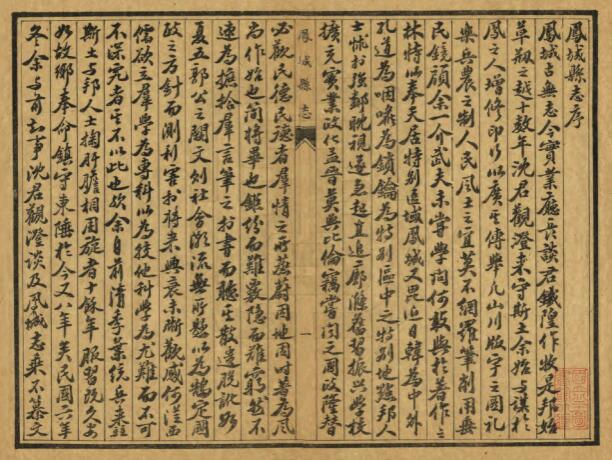 鳳城縣志序
鳳城古無志今實業廳長談君鐵隍作牧是邦始
草創之越十數年沈君觀澄來守斯土余始與謀於
鳳之人增修印行以廣其傳舉凡山川版宇之圖禮
樂兵農之制人民風土之宜莫不網羅筆削用垂
民鏡顧余一介武夫未嘗學問何敢與於著作之
林特以奉天居特別區域鳳城又毘近日韓為中外
孔道為咽喉為鎖鑰為特別區中之特別地點邦人
士怵於強鄰眈視遂急起直追廓滌舊習振興學校
擴充實業政化益晉莫與比倫竊嘗聞之國政隆替
鳳城縣志
一
必觀民德民德者羣情之所蒸蔚因地因時著為風
尚作始也簡將畢也鉅紛而難覈隱而難窮然不
速為摭拾羣言筆之於書而聽其散逸脫訛
夏五郭公之闕文則社會源流無所以為鵠定國
政之方針而測利害於將來興衰漸觀感何從西
儒欲立羣學為專科以為較他科學為尤難而不可
不深究者豈不以此也歟余自前清季葉統兵來駐
斯土與邦人士掬肝膽相周旋者十餘年服習久安
如故鄉奉命鎮守東陲於今又八年矣民國六年
冬余與前知事沈君觀澄談及鳳城志乘不纂文